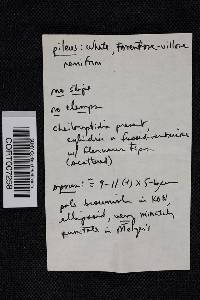 pileus: white, tomentose-villose
reniform
no stipe
no clamps
cheilocystidia present,
cylindric
w/ flexuous
(scattered)
spores: 9-11 (+) x 5-6 µm
pale brownish in KOH,
ellipsoid, very minutely
punctate in Melzer's
CORT007258